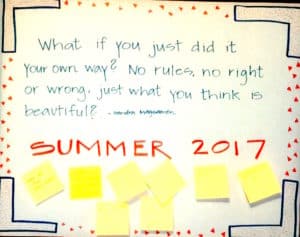 What if you just did it
your own way? No rules, no right
or wrong, just what you think is
beautiful? -
SUMMER 2017